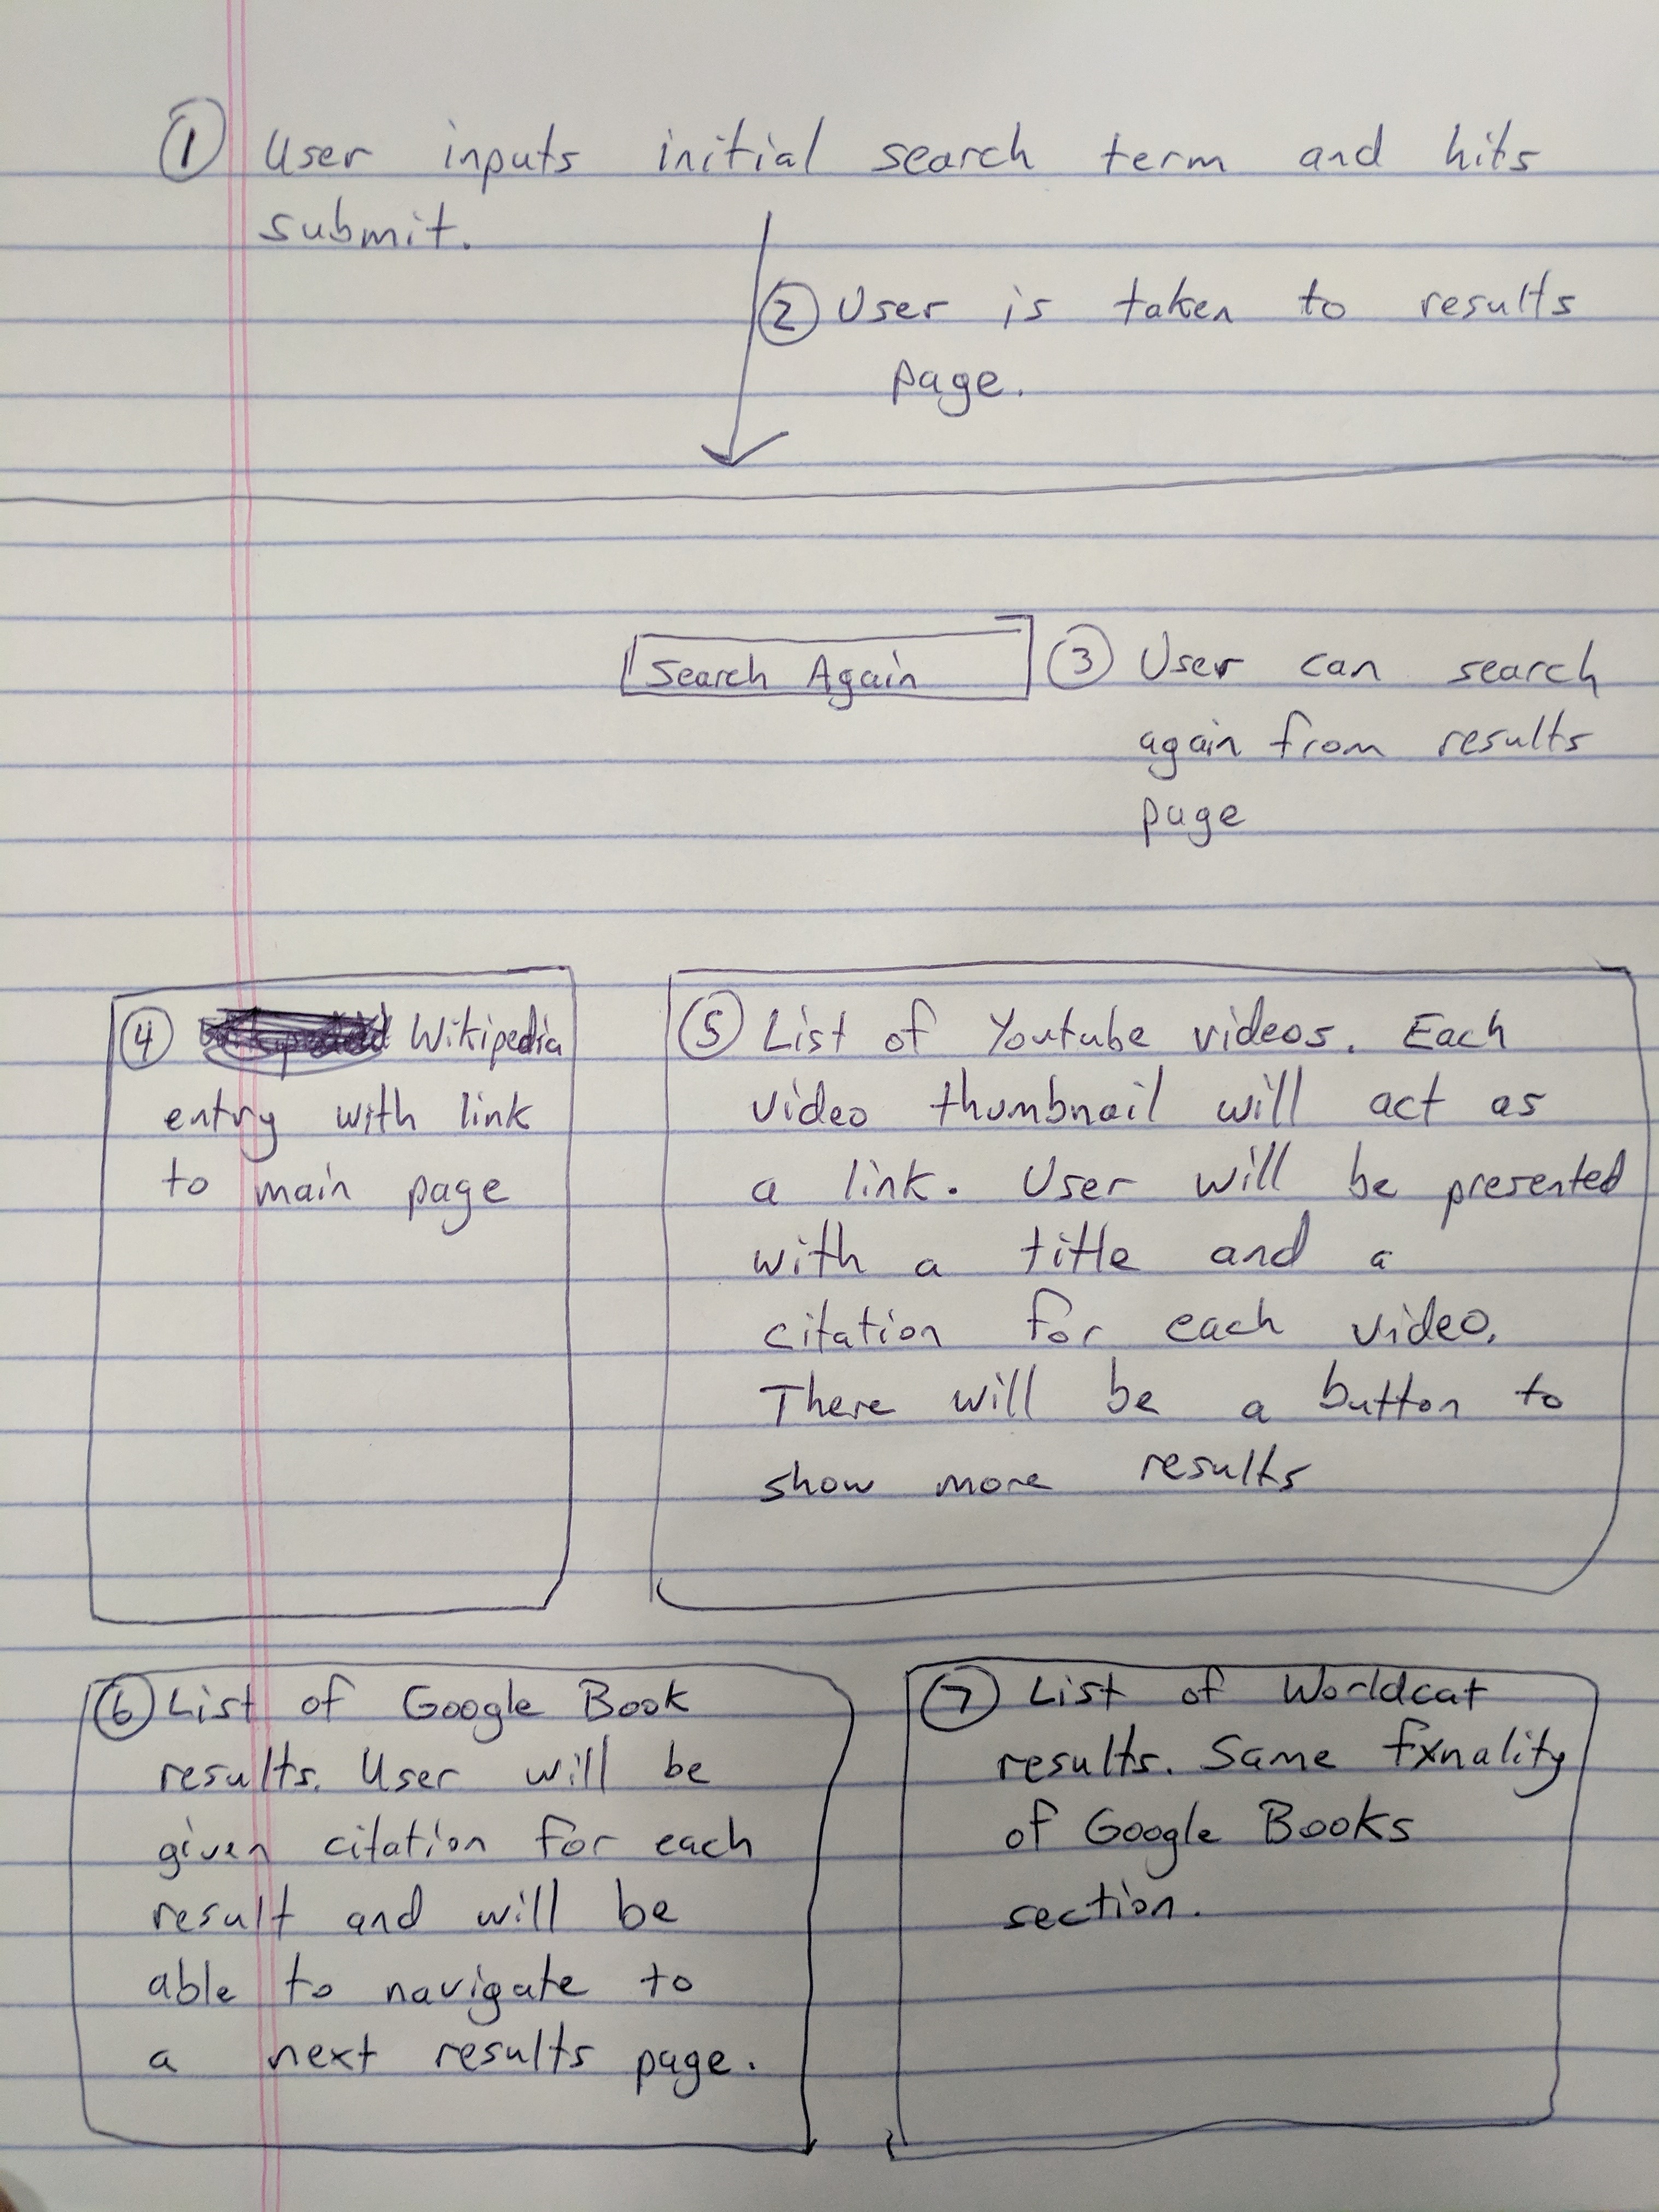 1 User inputs initial search term and hits
submit.
2 User is taken to results
page.
Search Again
3 User can search
again from results
page
4 Wikipedia
entry with link
to main page
5 List of Youtube videos. Each
video thumbnail will act as
a link. User will be presented
with a title and a
citation for each video.
There will be a button to
show more results
6 List of Google Book
results. User will be
given citation for each
result and will be
able to navigate to
a next results page.
7 List of Worldcat
results. Same fxnality
of Google Books
section.